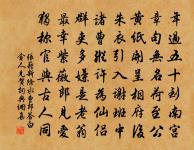 年過五十到南宮
章句無名荷至公
黃紙開呈相府後
朱衣引入謝班中
諸曹縱許為仙侶
群吏多嫌是老翁
最幸紫薇郎見愛
獨稱官與古人同
張籍新除水曹郎答白
舍人見賀詞典網集